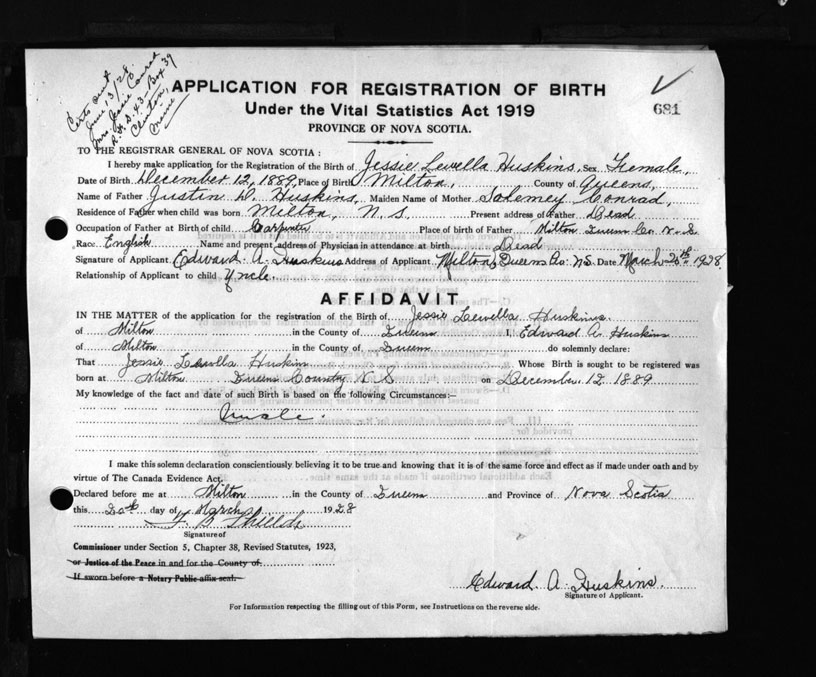 Certs sent
June 13/28.
Mrs. Jessie Conrad
R.F.D. #3 - Box 39
Clinton,
Maine
681
APPLICATION FOR REGISTRATION OF BIRTH
Under the Vital Statistics Act 1919
PROVINCE OF NOVA SCOTIA.
TO THE REGISTRAR GENERAL OF NOVA SCOTIA:
I hereby make application for the Registration of the Birth of Jessie Lewella Huskins, Sex Female,
Date of Birth December 12, 1889, Place of Birth Milton, County of Queens,
Name of Father Justin D. Huskins, Maiden Name of Mother Salemey Conrad,
Residence of Father when child was born Milton, N.S. Present address of Father Dead
Occupation of Father at Birth of child Carpenter Place of birth of Father Milton Queens Co. N.S
Race English Name and present address of Physician in attendance at birth Dead
Signature of Applicant Edward A. Huskins Address of Applicant Milton, Queens Co: N.S. Date March 20th 1928.
Relationship of Applicant to child Uncle.
AFFIDAVIT
IN THE MATTER of the application for the registration of the Birth of Jessie Lewella Huskins.
of Milton in the County of Queens I, Edward A. Huskins
of Milton in the County of Queens do solemnly declare:
That Jessie Lewella Huskins Whose Birth is sought to be registered was
born at Milton Queens County N.S on December 12 1889
My knowledge of the fact and date of such Birth is based on the following Circumstances:—
Uncle.
I make this solemn declaration conscientiously believing it to be true and knowing that it is of the same force and effect as if made under oath and by
virtue of The Canada Evidence Act.
Declared before me at Milton in the County of Queens and Province of Nova Scotia
this 20th day of March 1928
F B Shields
Signature of
Commissioner under Section 5, Chapter 38, Revised Statutes, 1923,
or Justice of the Peace in and for the County of
If sworn before a Notary Public affix seal.
Edward A. Huskins.
Signature of Applicant.
For Information respecting the filling out of this Form, see Instructions on the reverse side.